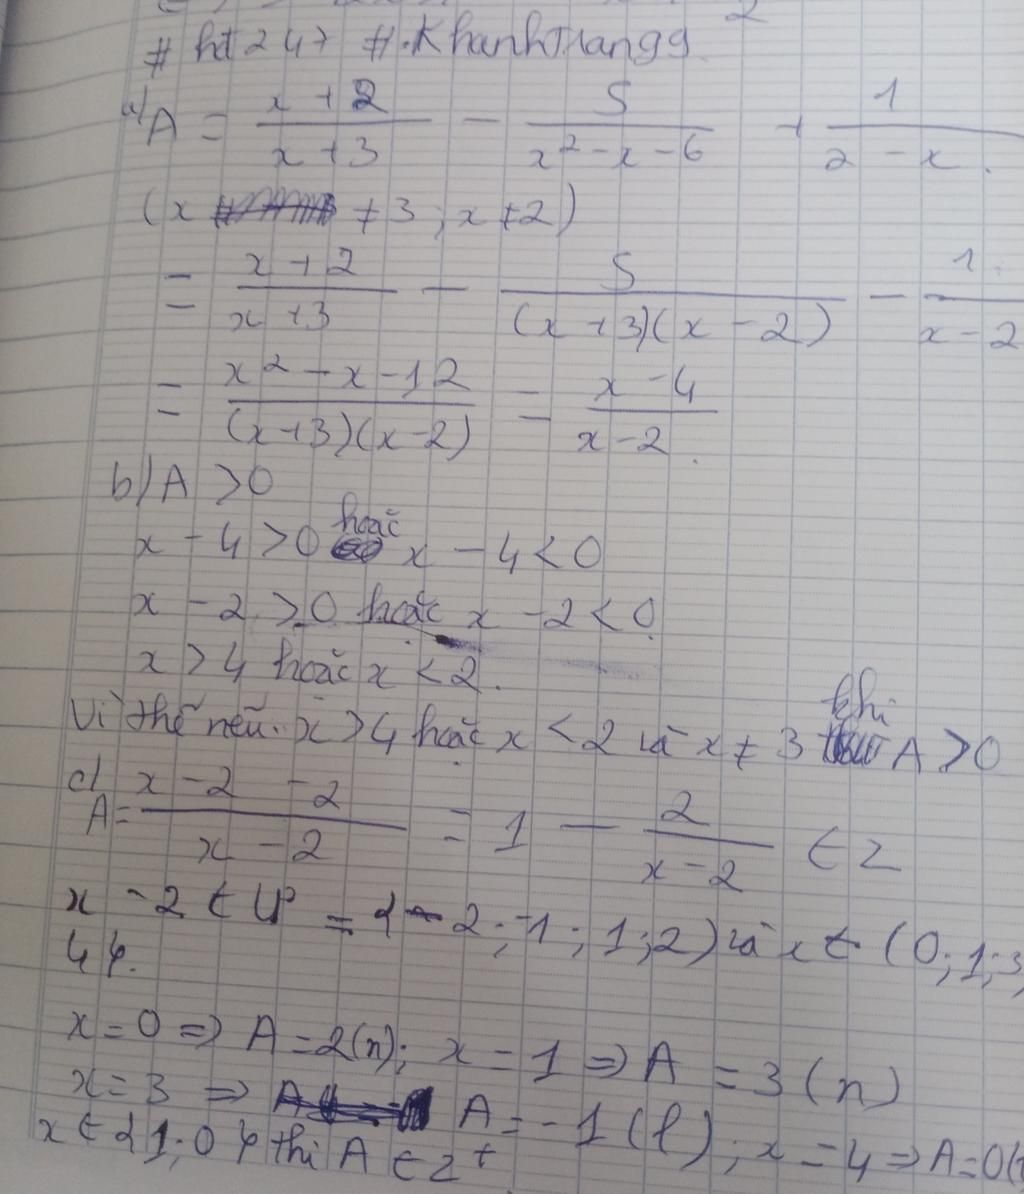 # ht247 #.Khanhtrang9.
a) A = \frac{x+2}{x+3} - \frac{5}{x^2-x-6} + \frac{1}{2-x}.
(x ≠ 3; x ≠ 2)
= \frac{x+2}{x+3} - \frac{5}{(x+3)(x-2)} - \frac{1}{x-2}
= \frac{x^2-x-12}{(x+3)(x-2)} = \frac{x-4}{x-2}.
b) A > 0
x - 4 > 0 hoặc x - 4 < 0
x - 2 > 0 hoặc x - 2 < 0
x > 4 hoặc x < 2.
Vì thế nếu x > 4 hoặc x < 2 và x ≠ 3 khi A > 0
c) A = \frac{x-2-2}{x-2} = 1 - \frac{2}{x-2} ∈ Z
x - 2 ∈ Ư = {-2; -1; 1; 2} và x ∈ (0; 1; 3;
4}.
x = 0 => A = 2(n); x = 1 => A = 3(n)
x = 3 => A = -1(l); x = 4 => A = 0(
x ∈ {1; 0} thì A ∈ Z^+